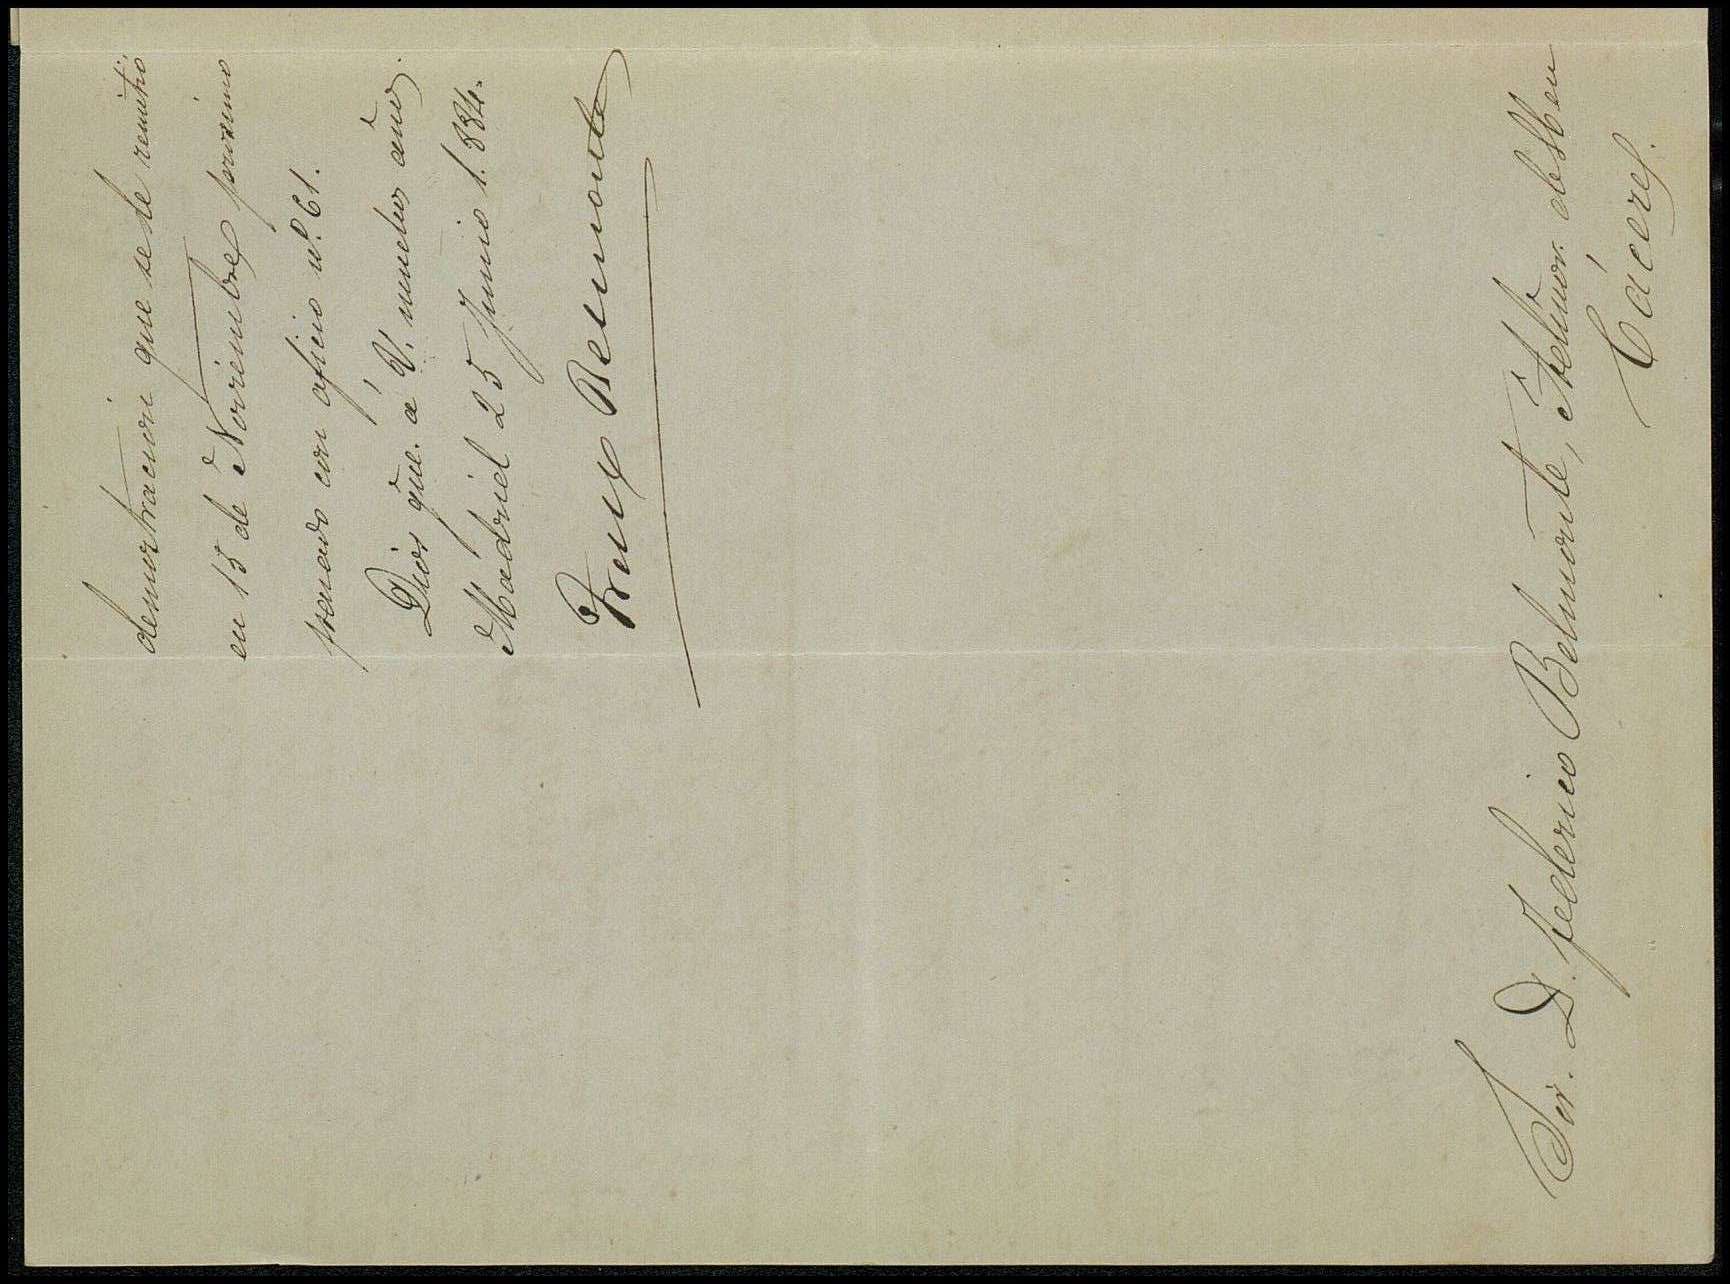 demostración que se le remitió
en 15 de Noviembre proximo
pasado con oficio nº. 61.
Dios gue. á V. muchos años.
Madrid 25 Junio 1.884.
Belmonte
Sor. D. Federico Belmonte, Admor. de
Cáceres.